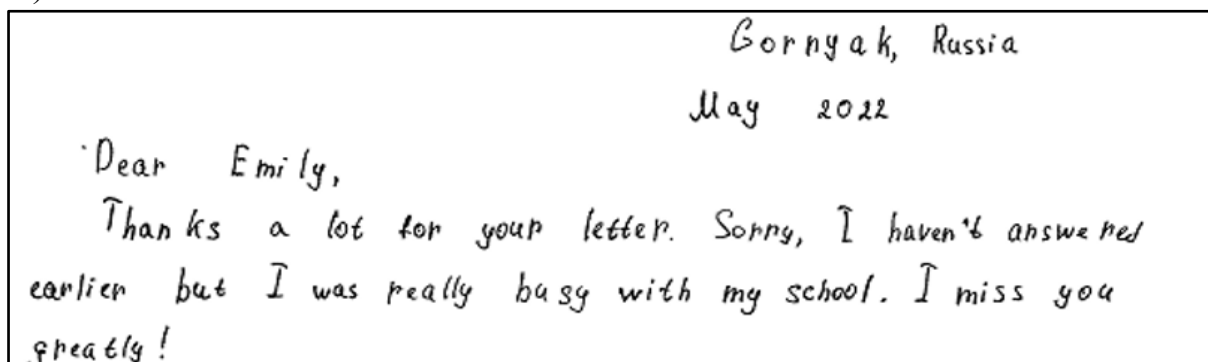 Gornyak, Russia
May 2022
Dear Emily,
Thanks a lot for your letter. Sorry, I haven't answered
earlier but I was really busy with my school. I miss you
greatly!